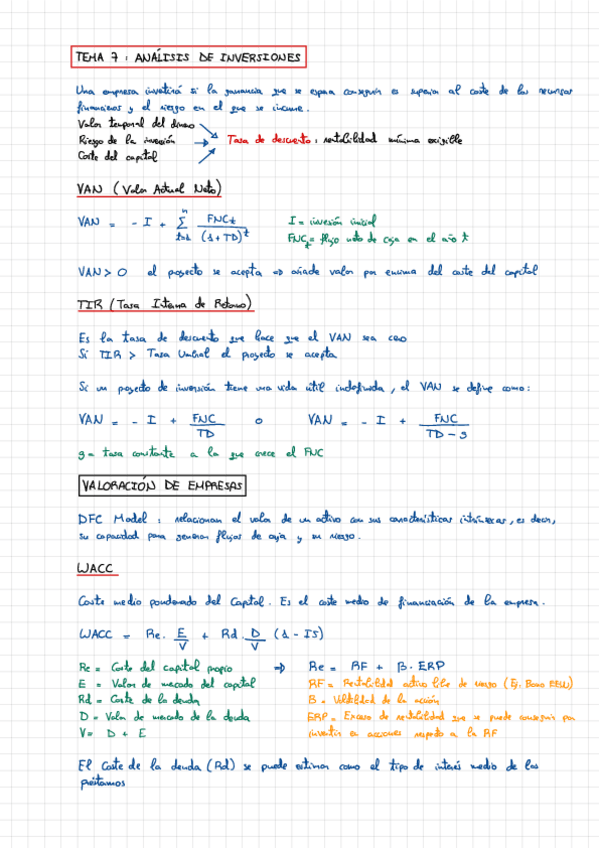 TEMA 7: ANÁLISIS DE INVERSIONES
Una empresa invertirá si la ganancia que se espera conseguir es superior al coste de los recursos
financieros y el riesgo en el que se incurre.
Valor temporal del dinero
Riesgo de la inversión → Tasa de descuento: rentabilidad mínima exigible
Coste del capital
VAN (Valor Actual Neto)
VAN = - I + Σ (t=1, n) FNCt / (1+TD)^t
I = inversión inicial
FNCt = flujo neto de caja en el año t
VAN > 0 el proyecto se acepta ⇒ añade valor por encima del coste del capital
TIR (Tasa Interna de Retorno)
Es la tasa de descuento que hace que el VAN sea cero
Si TIR > Tasa Umbral el proyecto se acepta
Si un proyecto de inversión tiene una vida útil indefinida, el VAN se define como:
VAN = - I + FNC / TD o VAN = - I + FNC / TD - g
g = tasa constante a la que crece el FNC
VALORACIÓN DE EMPRESAS
DFC Model: relacionan el valor de un activo con sus características intrínsecas, es decir,
su capacidad para generar flujos de caja y su riesgo.
WACC
Coste medio ponderado del Capital. Es el coste medio de financiación de la empresa.
WACC = Re. E/V + Rd. D/V (1 - IS)
Re = Coste del capital propio ⇒ Re = RF + B. ERP
E = Valor de mercado del capital
RF = Rentabilidad activo libre de riesgo (Ej. Bono EEUU)
Rd = Coste de la deuda
B = Volatilidad de la acción
D = Valor de mercado de la deuda
ERP = Exceso de rentabilidad que se puede conseguir por
V = D + E
invertir en acciones respecto a la RF
El coste de la deuda (Rd) se puede estimar como el tipo de interés medio de los
préstamos